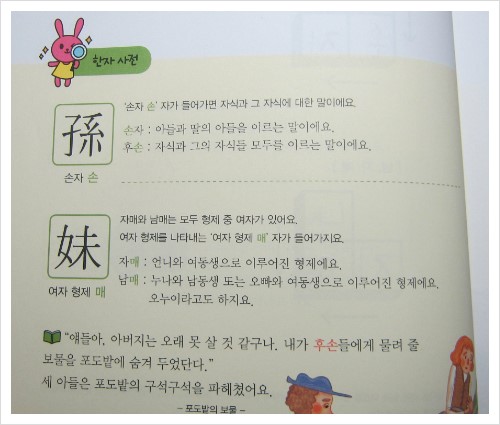 한자 사전
'손자 손' 자가 들어가면 자식과 그 자식에 대한 말이에요.
孫
손자 : 아들과 딸의 아들을 이르는 말이에요.
후손 : 자식과 그의 자식들 모두를 이르는 말이에요.
손자 손
자매와 남매는 모두 형제 중 여자가 있어요.
여자 형제를 나타내는 '여자 형제 매' 자가 들어가지요.
妹
자매 : 언니와 여동생으로 이루어진 형제에요.
남매 : 누나와 남동생 또는 오빠와 여동생으로 이루어진 형제에요.
오누이라고도 하지요.
여자 형제 매
"얘들아, 아버지는 오래 못 살 것 같구나. 내가 후손들에게 물려 줄
보물을 포도밭에 숨겨 두었단다."
세 아들은 포도밭의 구석구석을 파헤쳤어요.
- 포도밭의 보물 -